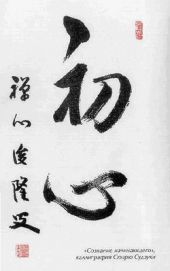 初心
禪心俊隆
«Сознание начинающего»,
каллиграфия Сюнрю Судзуки